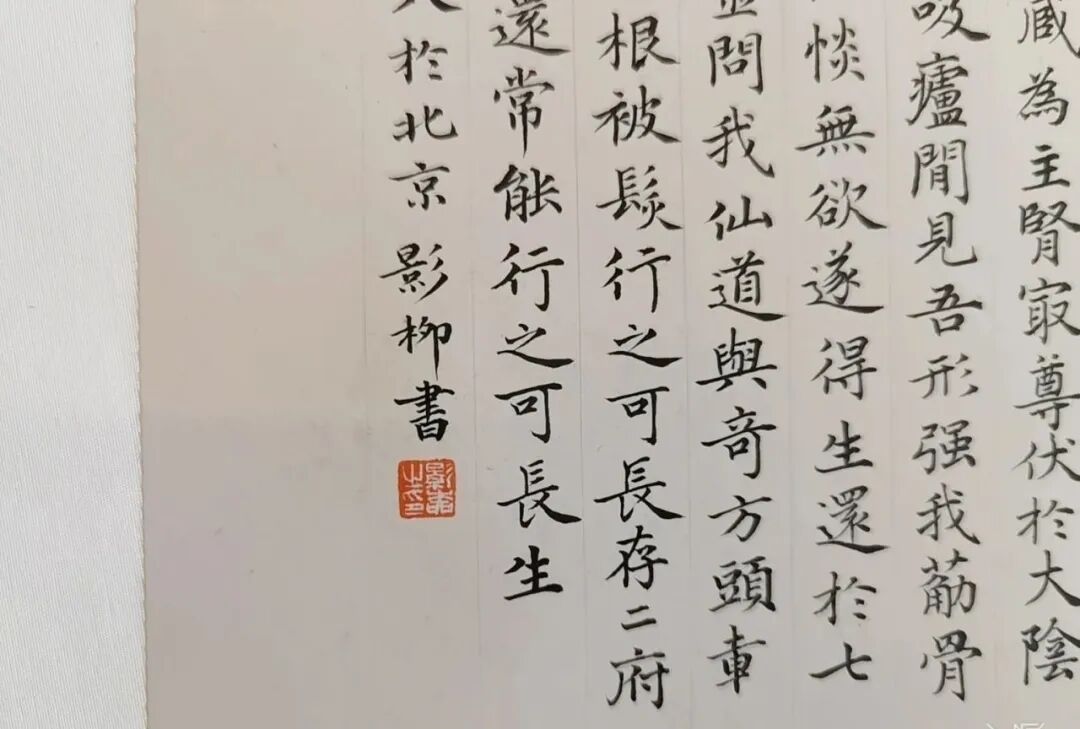 藏為主腎㝡尊伏於大陰
吸廬間見吾形强我葪骨
惔無欲遂得生還於七
並問我仙道與奇方頭車
根被髮行之可長存二府
還常能行之可長生
於北京影柳書